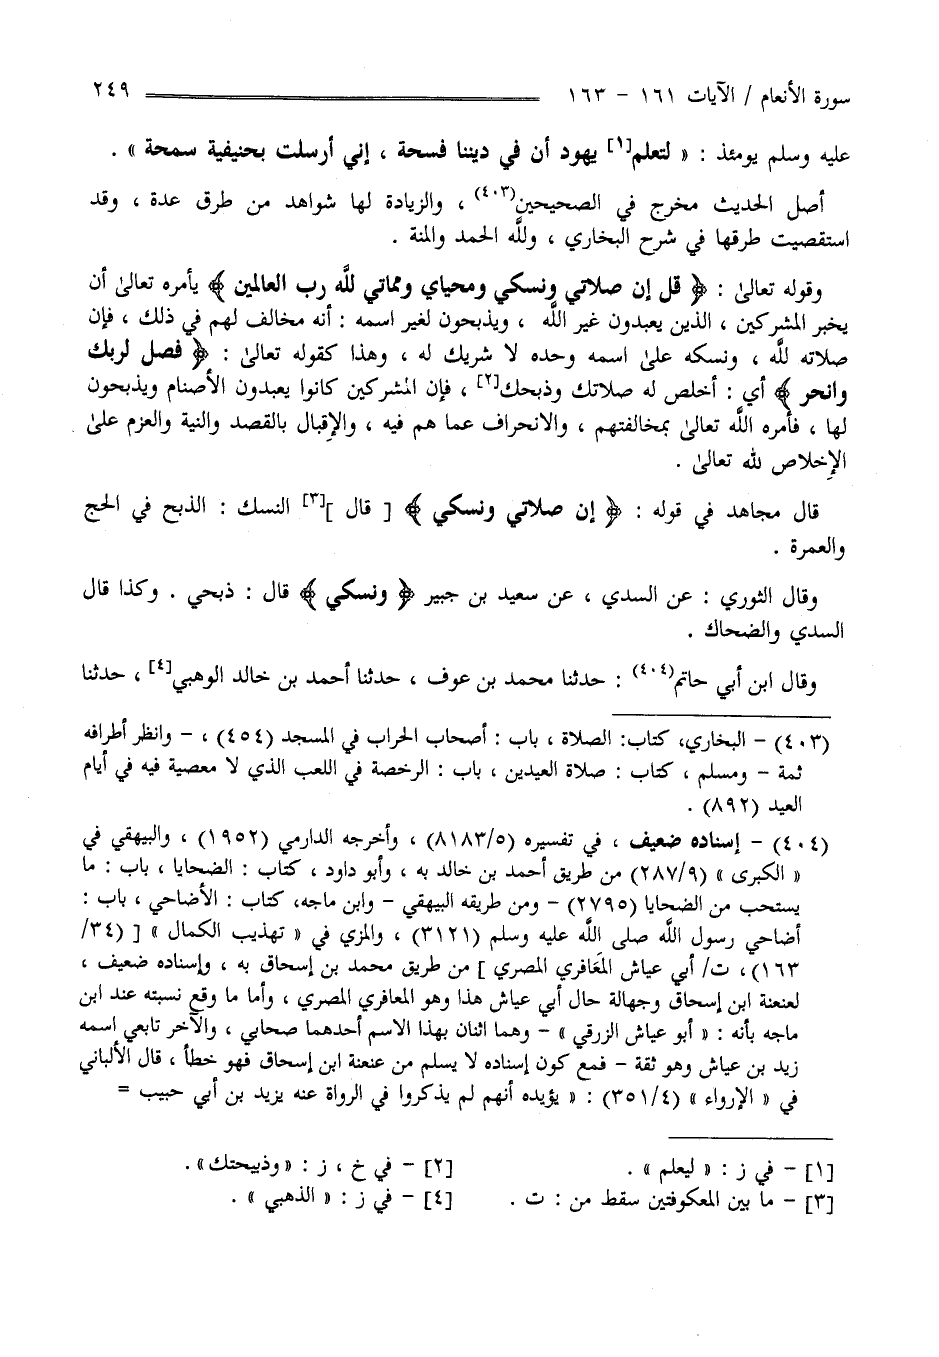 سورة الأنعام / الآيات ١٦١ - ١٦٣ ٢٤٩
عليه وسلم يومئذ : « لتعلم[١] يهود أن في ديننا فسحة ، إني أرسلت بحنيفية سمحة » .
أصل الحديث مخرج في الصحيحين(٤٠٣) ، والزيادة لها شواهد من طرق عدة ، وقد
استقصيت طرقها في شرح البخاري ، وللَّه الحمد والمنة .
وقوله تعالىٰ : ﴿ قل إن صلاتي ونسكي ومحياي ومماتي للَّه رب العالمين ﴾ يأمره تعالىٰ أن
يخبر المشركين ، الذين يعبدون غير اللَّه ، ويذبحون لغير اسمه : أنه مخالف لهم في ذلك ، فإن
صلاته للَّه ، ونسكه علىٰ اسمه وحده لا شريك له ، وهذا كقوله تعالىٰ : ﴿ فصل لربك
وانحر ﴾ أي : أخلص له صلاتك وذبحك[٢] ، فإن المشركين كانوا يعبدون الأصنام ويذبحون
لها ، فأمره اللَّه تعالىٰ بمخالفتهم ، والانحراف عما هم فيه ، والإقبال بالقصد والنية والعزم علىٰ
الإخلاص لله تعالىٰ .
قال مجاهد في قوله : ﴿ إن صلاتي ونسكي ﴾ [ قال ][٣] النسك : الذبح في الحج
والعمرة .
وقال الثوري : عن السدي ، عن سعيد بن جبير ﴿ ونسكي ﴾ قال : ذبحي . وكذا قال
السدي والضحاك .
وقال ابن أبي حاتم(٤٠٤) : حدثنا محمد بن عوف ، حدثنا أحمد بن خالد الوهبي[٤] ، حدثنا
(٤٠٣) - البخاري، كتاب: الصلاة ، باب : أصحاب الحراب في المسجد (٤٥٤) ، - وانظر أطرافه
ثمة - ومسلم ، كتاب : صلاة العيدين ، باب : الرخصة في اللعب الذي لا معصية فيه في أيام
العيد (٨٩٢) .
(٤٠٤) - إسناده ضعيف ، في تفسيره (٨١٨٣/٥) ، وأخرجه الدارمي (١٩٥٢) ، والبيهقي في
« الكبرى » (٢٨٧/٩) من طريق أحمد بن خالد به ، وأبو داود ، كتاب : الضحايا ، باب : ما
يستحب من الضحايا (٢٧٩٥) - ومن طريقه البيهقي - وابن ماجه، كتاب : الأضاحي ، باب :
أضاحي رسول اللَّه صلى اللَّه عليه وسلم (٣١٢١) ، والمزي في « تهذيب الكمال » [ (٣٤/
١٦٣)، ت/ أبي عياش المَعافري المصري ] من طريق محمد بن إسحاق به ، وإسناده ضعيف ،
لعنعنة ابن إسحاق وجهالة حال أبي عياش هذا وهو المعافري المصري ، وأما ما وقع نسبته عند ابن
ماجه بأنه : « أبو عياش الزرقي » - وهما اثنان بهذا الاسم أحدهما صحابي ، والآخر تابعي اسمه
زيد بن عياش وهو ثقة - فمع كون إسناده لا يسلم من عنعنة ابن إسحاق فهو خطأ ، قال الألباني
في « الإرواء » (٣٥١/٤) : « يؤيده أنهم لم يذكروا في الرواة عنه يزيد بن أبي حبيب =
[١] - في ز : « ليعلم » . [٢] - في خ ، ز : «وذبيحتك» .
[٣] - ما بين المعكوفتين سقط من : ت . [٤] - في ز : « الذهبي » .